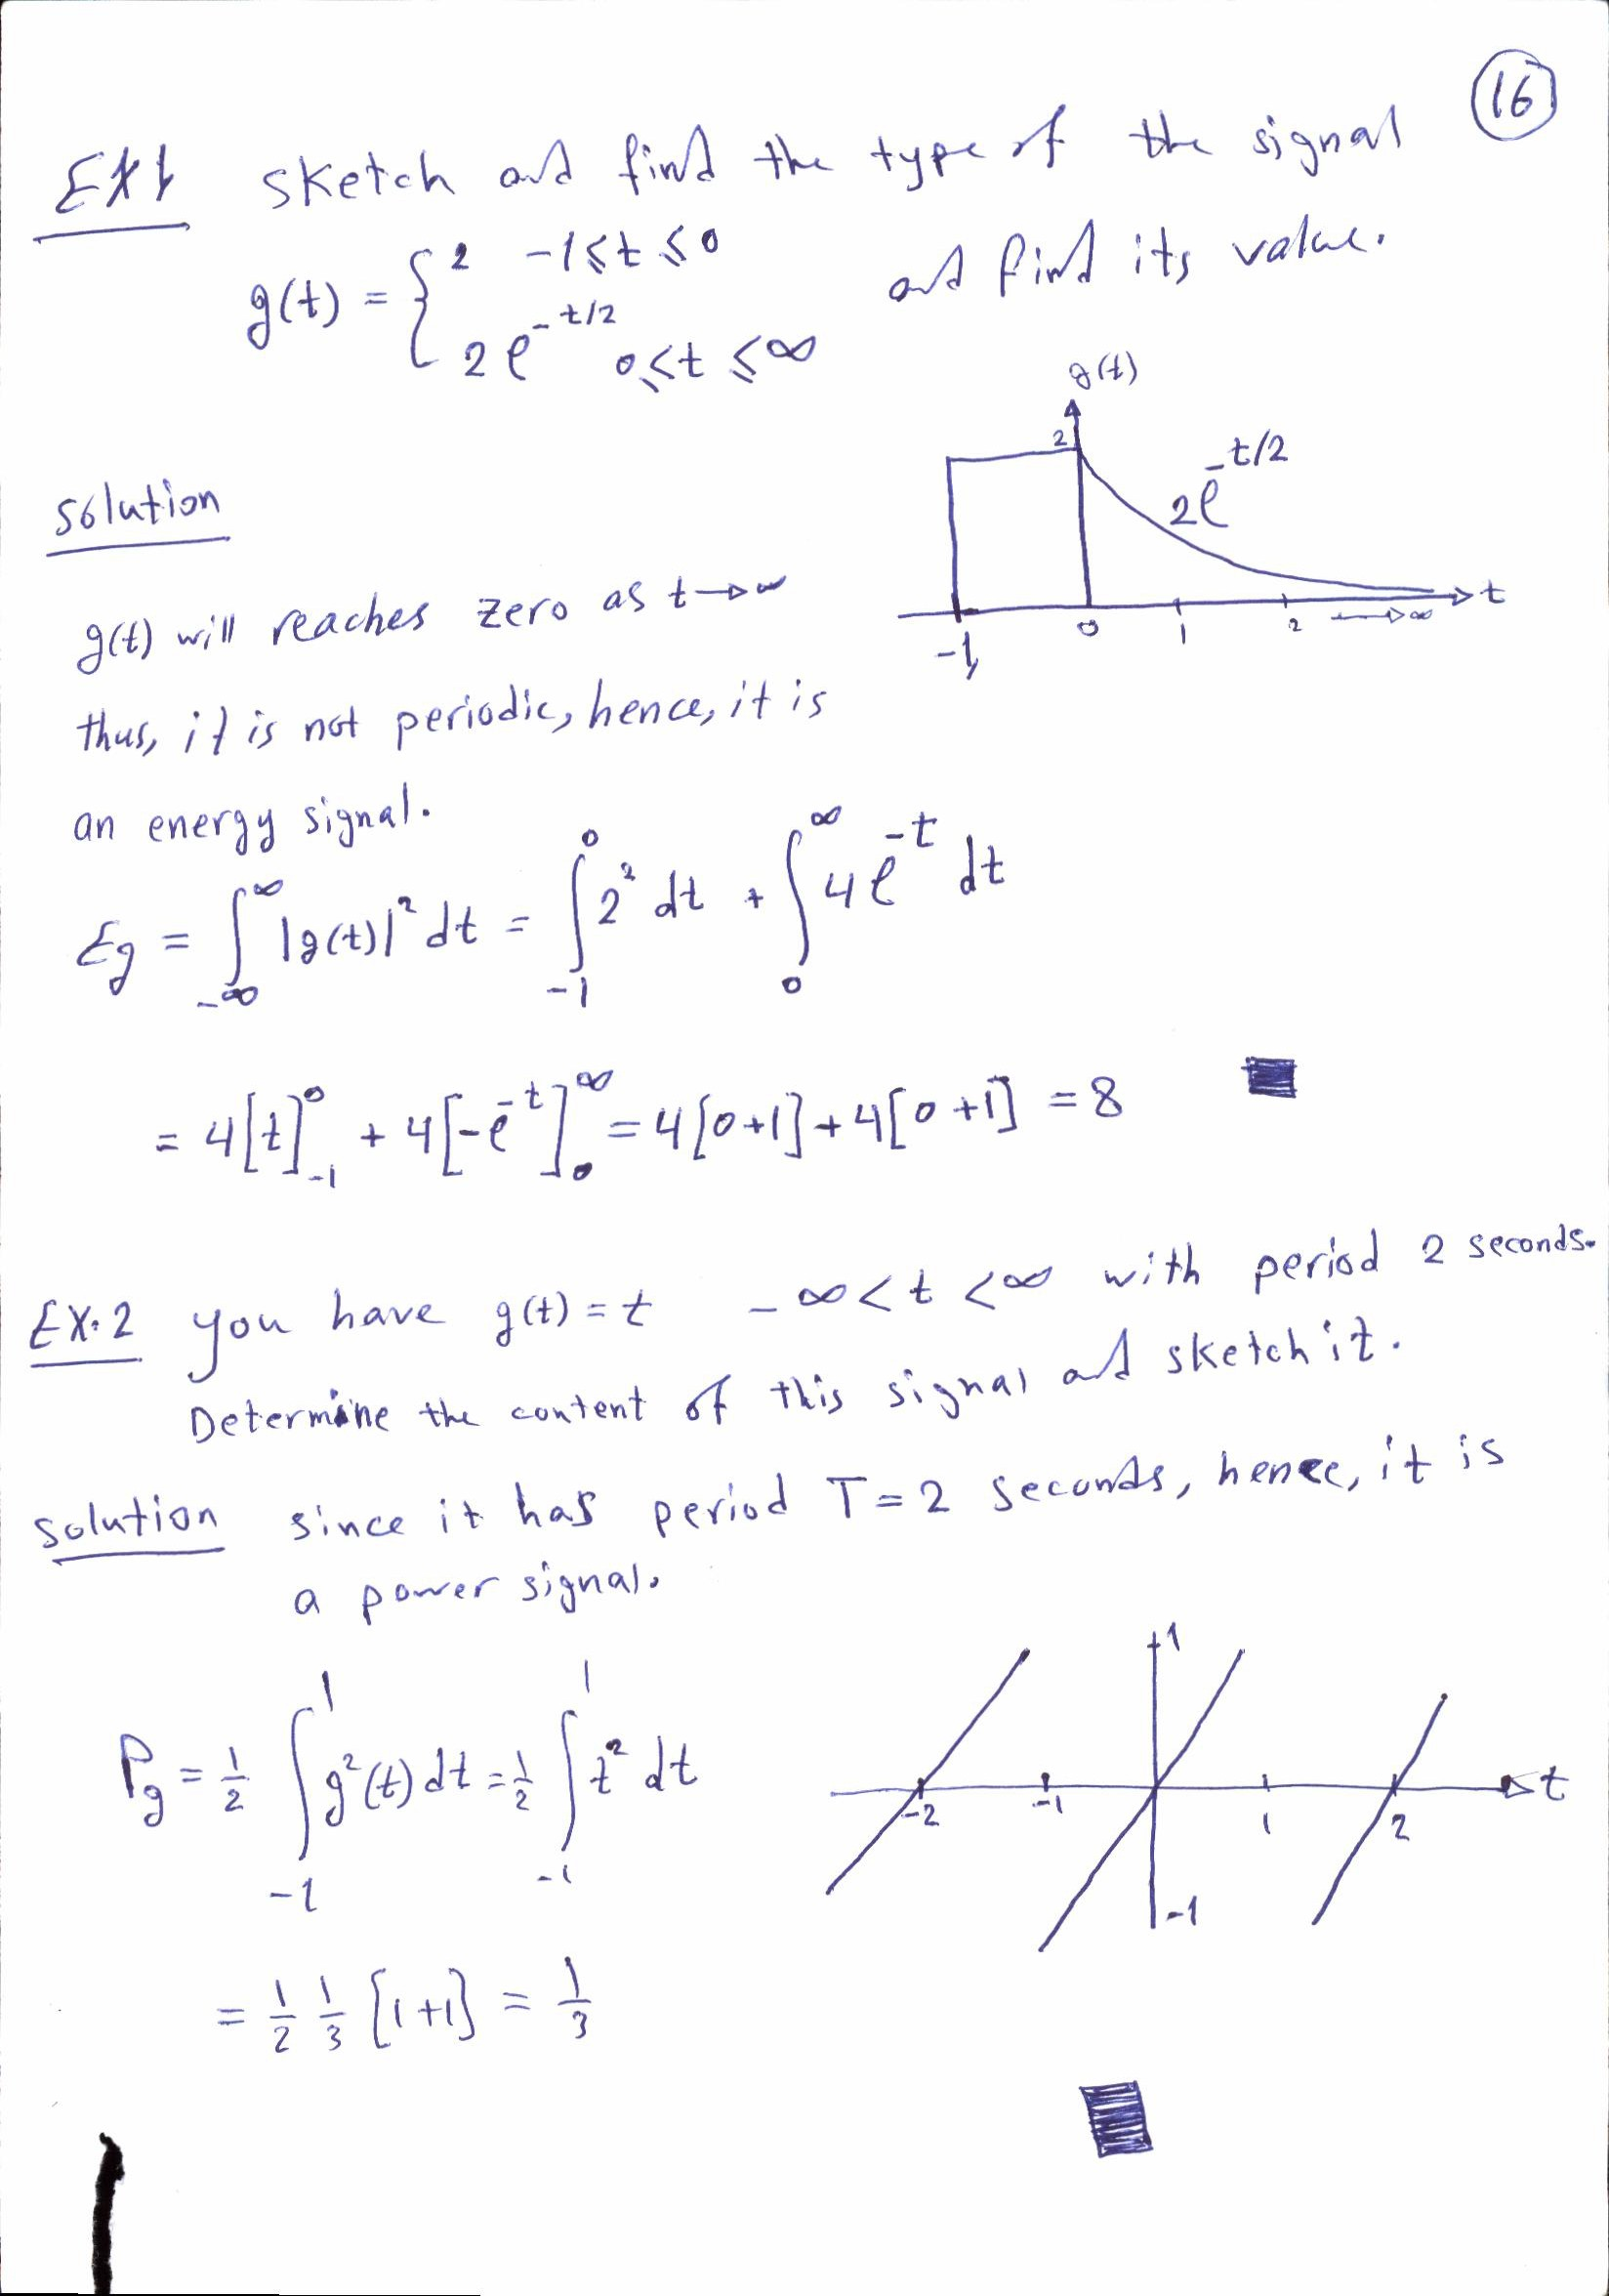 16
EX1 sketch and find the type of the signal
g(t) = { 2 -1≤t≤0 and find its value.
2e^{-t/2} 0≤t≤∞
g(t)
2
2e^{-t/2}
-1 0 1 2 →∞ t
solution
g(t) will reaches zero as t→∞
thus, it is not periodic, hence, it is
an energy signal.
Eg = ∫_{-∞}^{∞} |g(t)|² dt = ∫_{-1}^{0} 2² dt + ∫_{0}^{∞} 4e^{-t} dt
= 4[t]_{-1}^{0} + 4[-e^{-t}]_{0}^{∞} = 4[0+1]+4[0+1] = 8
EX.2 you have g(t) = t -∞<t<∞ with period 2 seconds.
Determine the content of this signal and sketch it.
solution since it has period T=2 seconds, hence, it is
a power signal.
Pg = 1/2 ∫_{-1}^{1} g²(t) dt = 1/2 ∫_{-1}^{1} t² dt
= 1/2 1/3 [1+1] = 1/3
1
-2 -1 1 2 t
-1